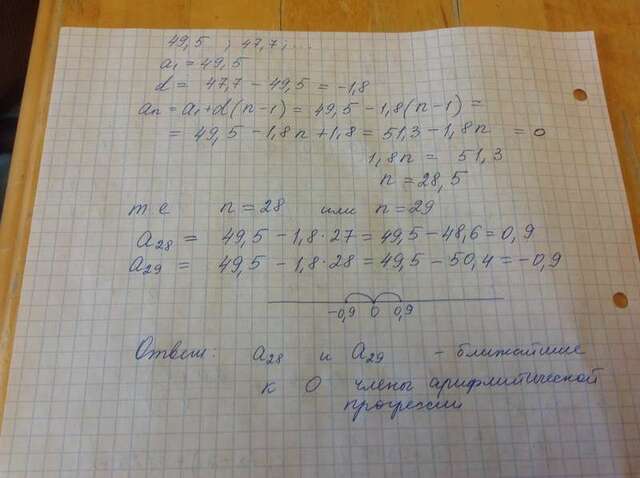 49,5 ; 47,7 ; ...
a₁ = 49,5
d = 47,7 - 49,5 = -1,8
an = a₁ + d(n-1) = 49,5 - 1,8(n-1) =
= 49,5 - 1,8n + 1,8 = 51,3 - 1,8n = 0
1,8n = 51,3
n = 28,5
т е n = 28 или n = 29
a₂₈ = 49,5 - 1,8·27 = 49,5 - 48,6 = 0,9
a₂₉ = 49,5 - 1,8·28 = 49,5 - 50,4 = -0,9
-0,9 0 0,9
Ответ: a₂₈ и a₂₉ - ближайшие
к 0 члены арифмитической
прогрессии